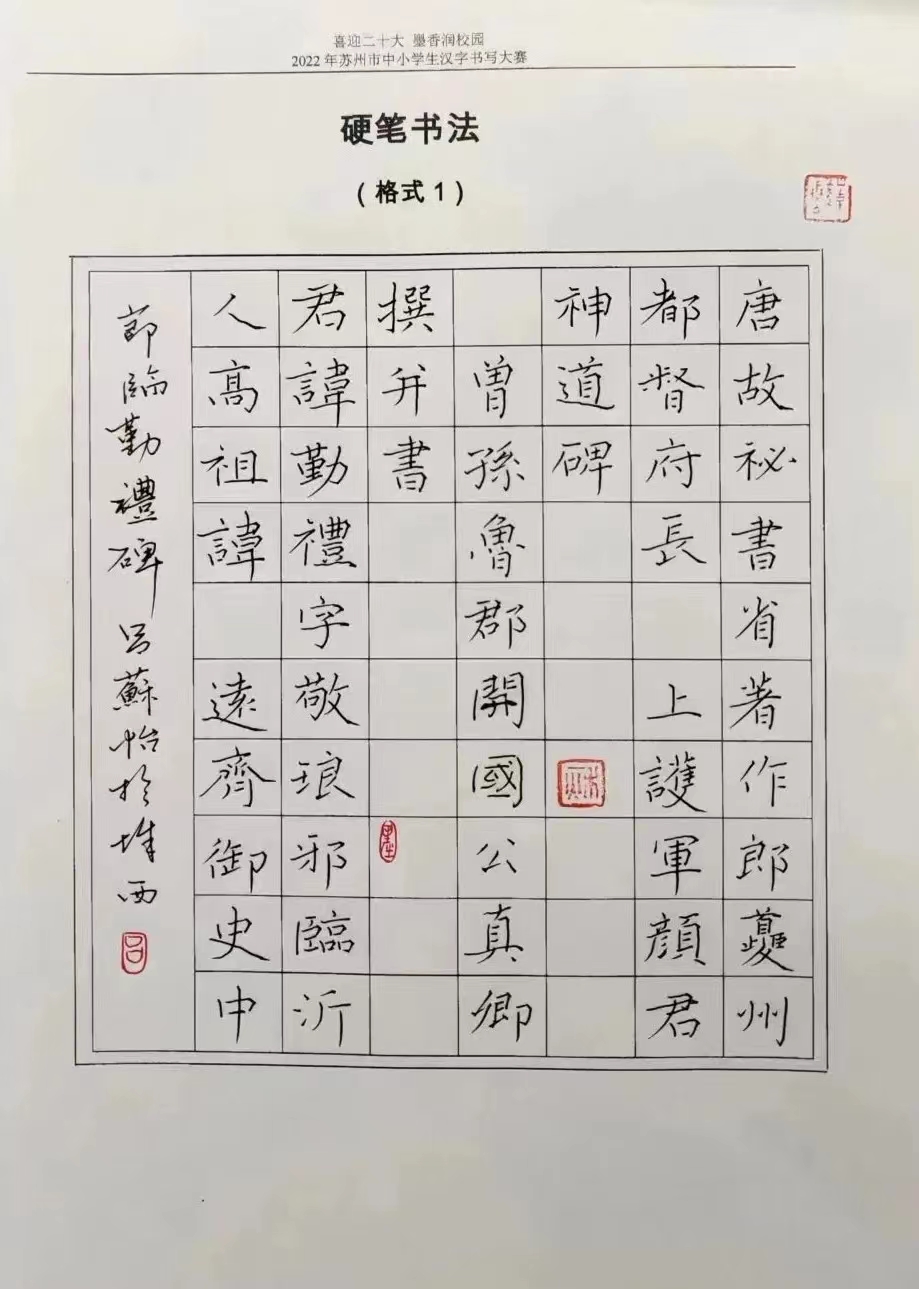 喜迎二十大 墨香润校园
2022年苏州市中小学生汉字书写大赛
硬笔书法
(格式1)
唐故祕書省著作郎夔州
都督府長 上護軍顔君
神道碑
曾孫魯郡開國公真卿
撰并書
君諱勤禮字敬琅邪臨沂
人高祖諱 遠齊御史中
節臨勤禮碑 呂蘇怡於城西
呂